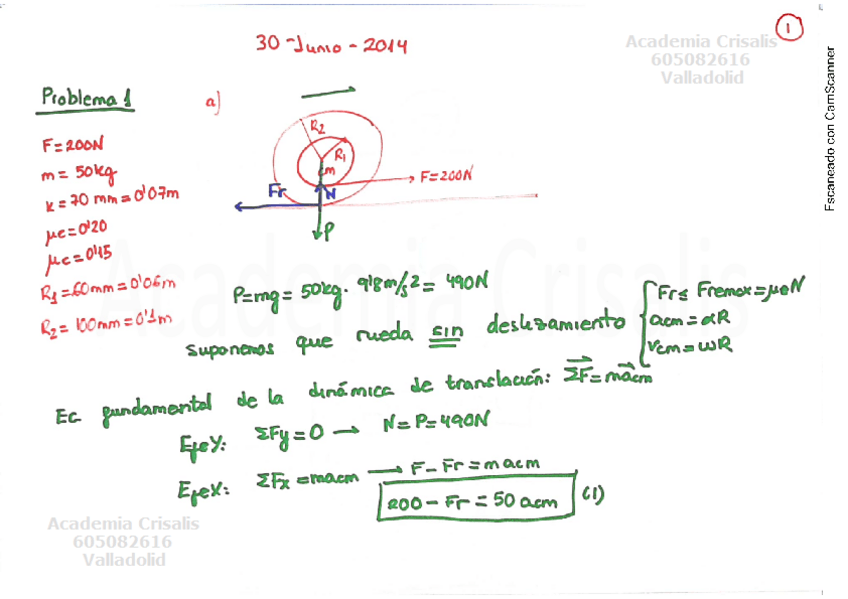 1
30-Junio-2014
Academia Crisalis
605082616
Valladolid
Fscaneado con CamScanner
Problema 1
a)
F=200N
m=50kg
k=70 mm=0'07m
μe=0'20
μc=0'15
R1=60mm=0'06m
R2=100mm=0'1m
R2
R1
m
F=200N
Fr
N
P
P=mg=50kg·9'8m/s²=490N
suponemos que rueda sin deslizamiento
Fr≤Fremax=μeN
acm=αR
vcm=ωR
Ec fundamental de la dinámica de translación: ΣF=macm
Eje Y: ΣFy=0 → N=P=490N
Eje X: ΣFx=macm → F-Fr=macm
200-Fr=50acm (1)
Academia Crisalis
Academia Crisalis
605082616
Valladolid